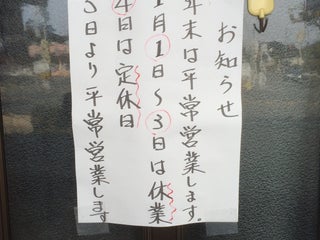 お知らせ
年末は平常営業します。
1月1日〜3日は休業
4日は定休日
5日より平常営業します